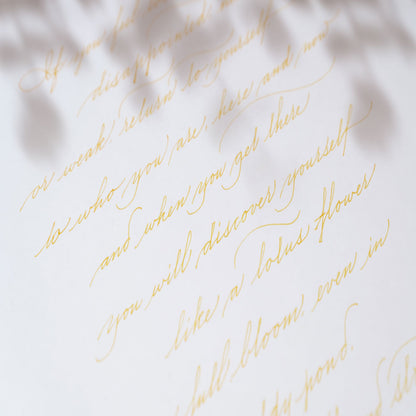 If you feel
disappointed
or weak, return to yourself
to who you are, here and now
and when you get there
you will discover yourself
like a lotus flower
full bloom, even in
pond,
and